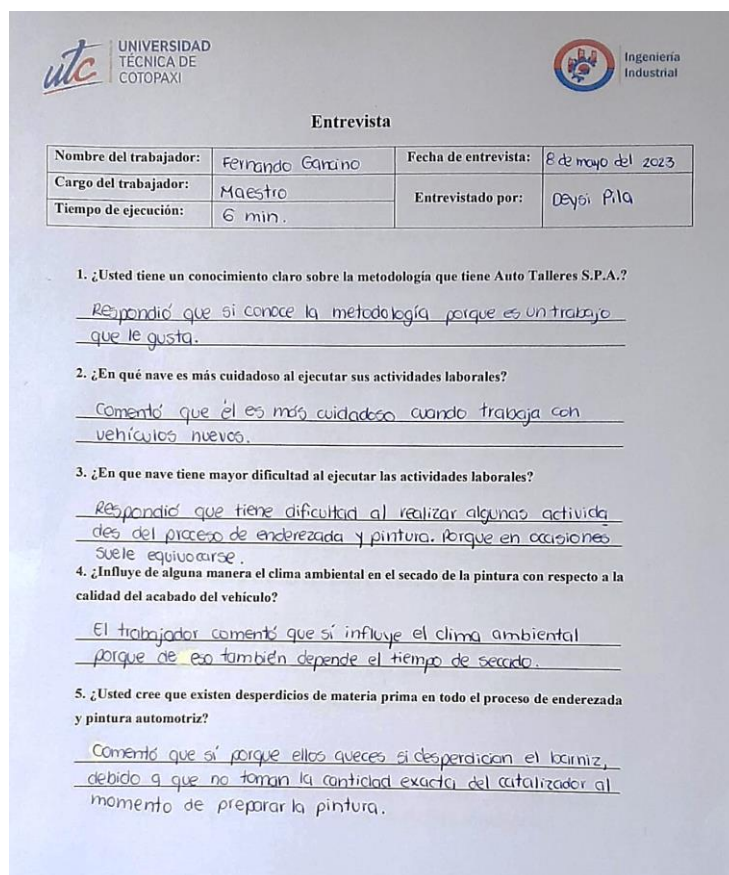 utc UNIVERSIDAD
TÉCNICA DE
COTOPAXI
Ingeniería
Industrial
Entrevista
Nombre del trabajador: Fernando Gancino Fecha de entrevista: 8 de mayo del 2023
Cargo del trabajador: Maestro Entrevistado por: Deysi Pila
Tiempo de ejecución: 6 min.
1. ¿Usted tiene un conocimiento claro sobre la metodología que tiene Auto Talleres S.P.A.?
Respondió que si conoce la metodología porque es un trabajo
que le gusta.
2. ¿En qué nave es más cuidadoso al ejecutar sus actividades laborales?
Comentó que él es más cuidadoso cuando trabaja con
vehículos nuevos.
3. ¿En que nave tiene mayor dificultad al ejecutar las actividades laborales?
Respondió que tiene dificultad al realizar algunas activida
des del proceso de enderezada y pintura. Porque en ocasiones
suele equivocarse.
4. ¿Influye de alguna manera el clima ambiental en el secado de la pintura con respecto a la
calidad del acabado del vehículo?
El trabajador comentó que sí influye el clima ambiental
porque de eso también depende el tiempo de secado.
5. ¿Usted cree que existen desperdicios de materia prima en todo el proceso de enderezada
y pintura automotriz?
Comentó que sí porque ellos aveces si desperdician el barniz,
debido a que no toman la cantidad exacta del catalizador al
momento de preparar la pintura.